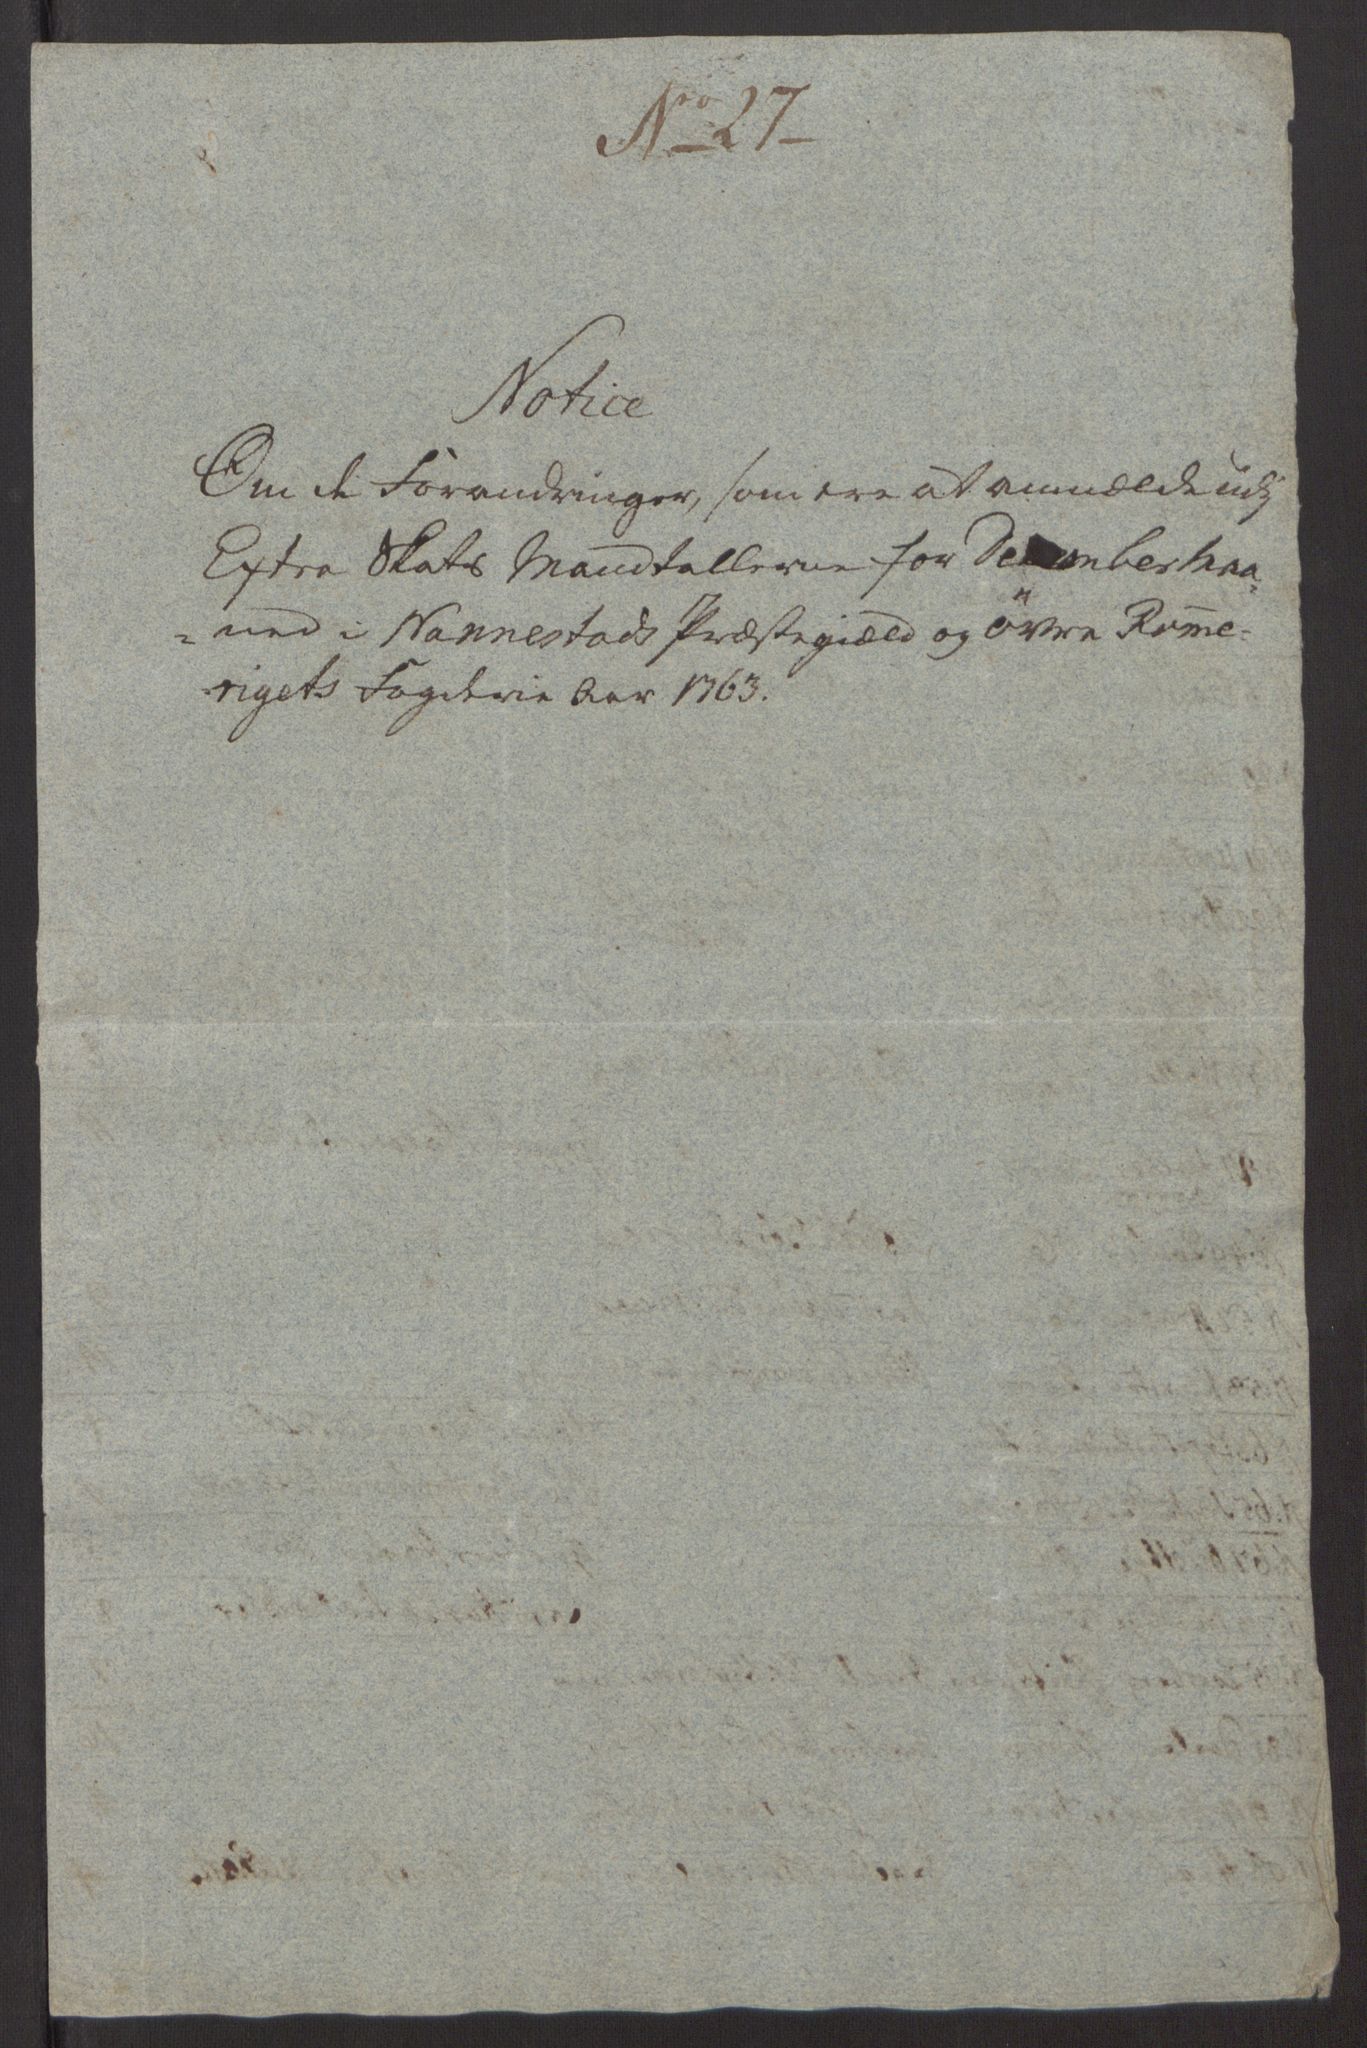 Nro 27
Notice
Om de Forandringer, som ere at anmælde udj
Extra Skats Mandtallerne for Decemberhaa-
=ned i Nannestads Præstegiæld og öwre Rome-
rigets Fogderie Aar 1763.